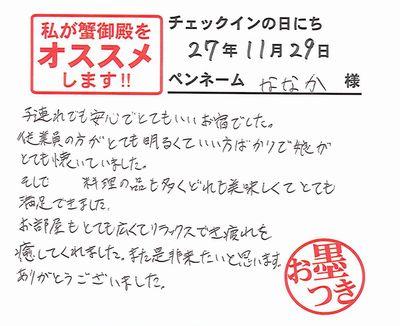 私が蟹御殿を
オススメ
します!!
チェックインの日にち
27年11月29日
ペンネーム ななか 様
子連れでも安心でとてもいいお宿でした。
従業員の方がとても明るくていい方ばかりで娘が
とても懐いていました。
そして 料理の品も多くどれも美味しくてとても
満足できました。
お部屋もとても広くてリラックスでき疲れを
癒してくれました。また是非来たいと思います。
ありがとうございました。
お墨つき